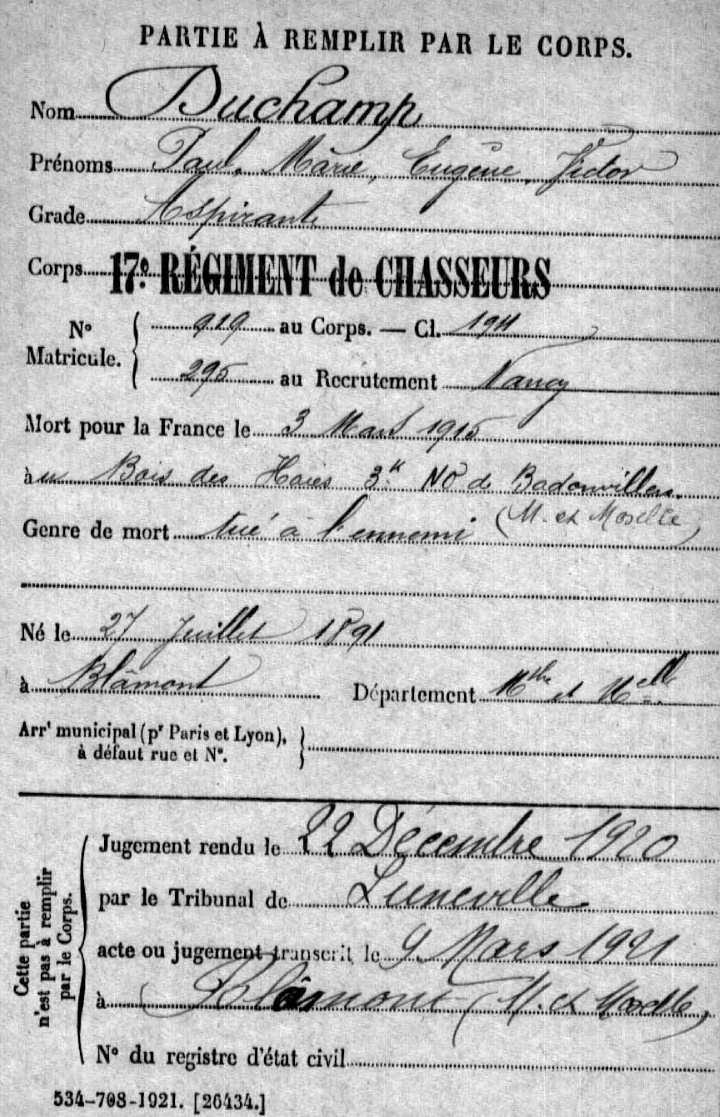 PARTIE À REMPLIR PAR LE CORPS.
Nom Duchamp
Prénoms Paul, Marie, Eugène, Victor
Grade Aspirant
Corps 17e RÉGIMENT de CHASSEURS
No Matricule. 919 au Corps. — Cl. 1911
295 au Recrutement Nancy
Mort pour la France le 3 Mars 1915
au Bois des Haies 3k NO de Badonviller.
(M. et Moselle)
Genre de mort tué à l'ennemi
Né le 27 Juillet 1891
à Blâmont Département Mthe et Melle.
Arrt municipal (pr Paris et Lyon),
à défaut rue et No.
Cette partie
n'est pas à remplir
par le Corps.
Jugement rendu le 22 Décembre 1920
par le Tribunal de Luneville
acte ou jugement transcrit le 9 Mars 1921
à Blâmont (M. et Moselle)
No du registre d'état civil
534-708-1921. [26434.]